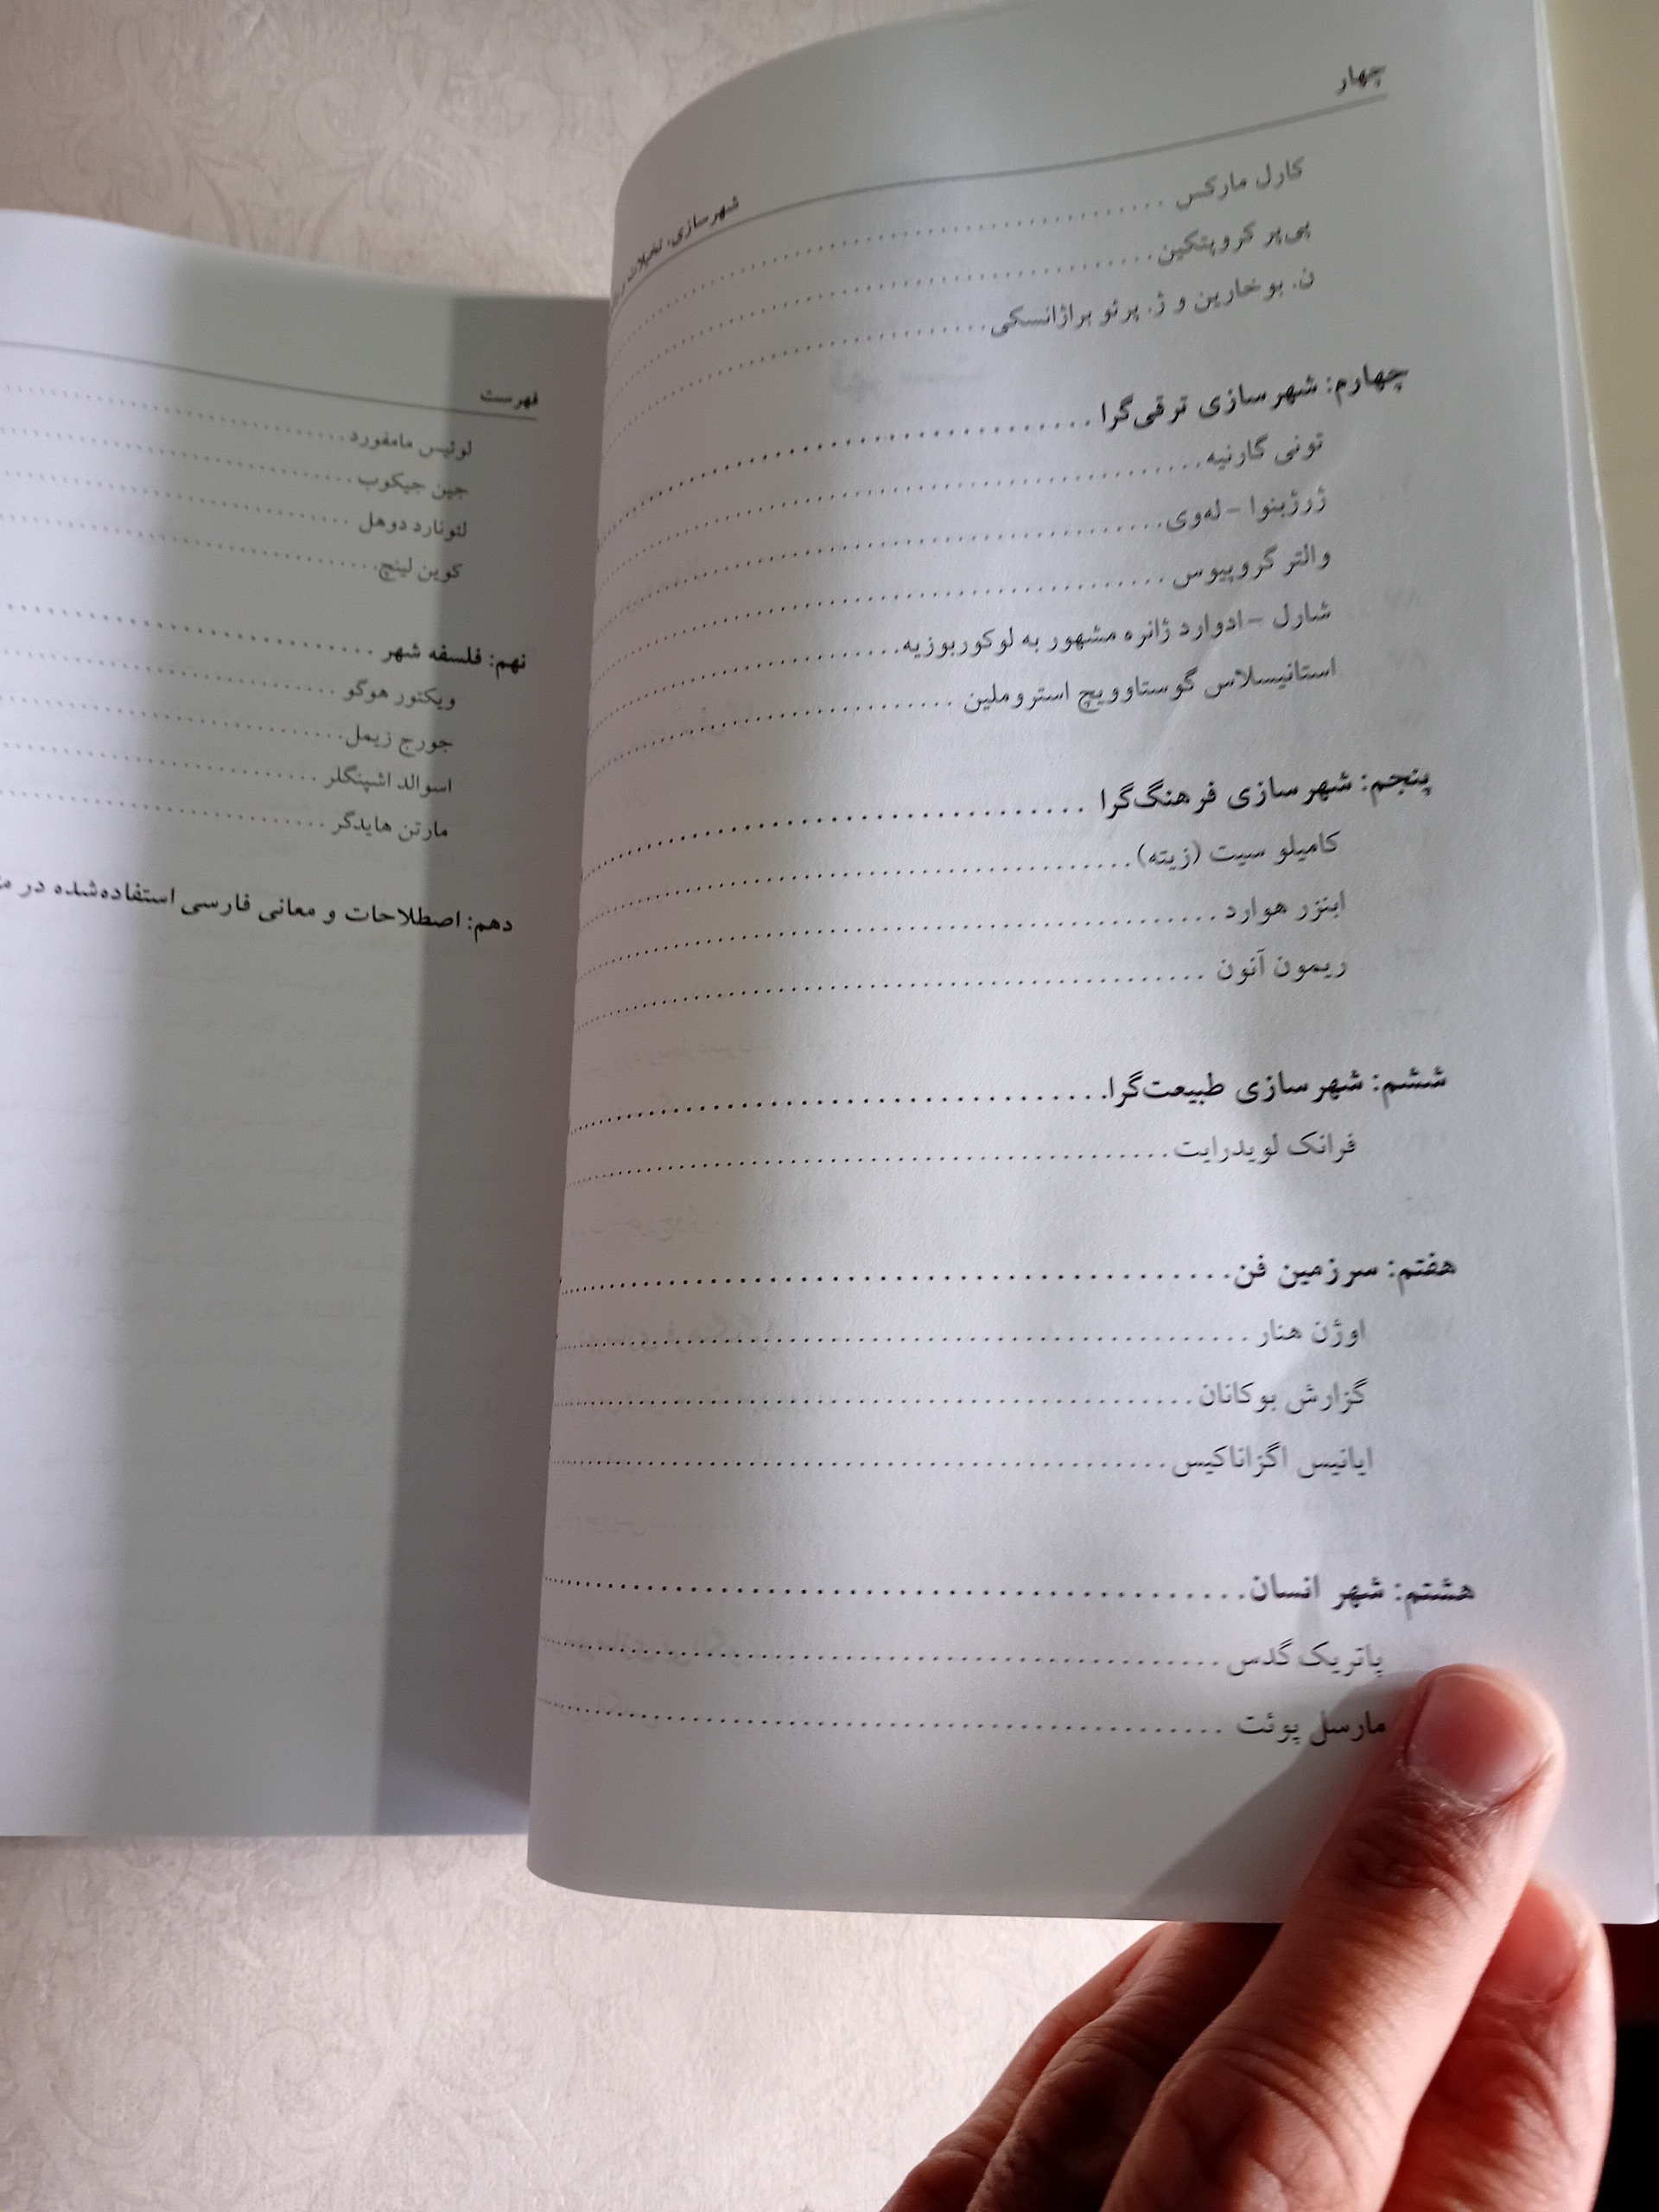 چهار
شهرسازی، تخیلات و
کارل مارکس
پی‌یر کروپتکین
ن. بوخارین و ژ. پرئو براژانسکی
چهارم: شهرسازی ترقی‌گرا
تونی گارنیه
ژرژبنوا - له‌وی
والتر گروپیوس
شارل - ادوارد ژانره مشهور به لوکوربوزیه
استانیسلاس گوستاوویچ استروملین
پنجم: شهرسازی فرهنگ‌گرا
کامیلو سیت (زیته)
ابنزر هوارد
ریمون آنون
ششم: شهرسازی طبیعت‌گرا
فرانک لویدرایت
هفتم: سرزمین فن
اوژن هنار
گزارش بوکانان
ایانیس اگزاناکیس
هشتم: شهر انسان
پاتریک گدس
مارسل پوئت
فهرست
لوئیس مامفورد
جین جیکوب
لئونارد دوهل
کوین لینچ
نهم: فلسفه شهر
ویکتور هوگو
جورج زیمل
اسوالد اشپنگلر
مارتن هایدگر
دهم: اصطلاحات و معانی فارسی استفاده‌شده در